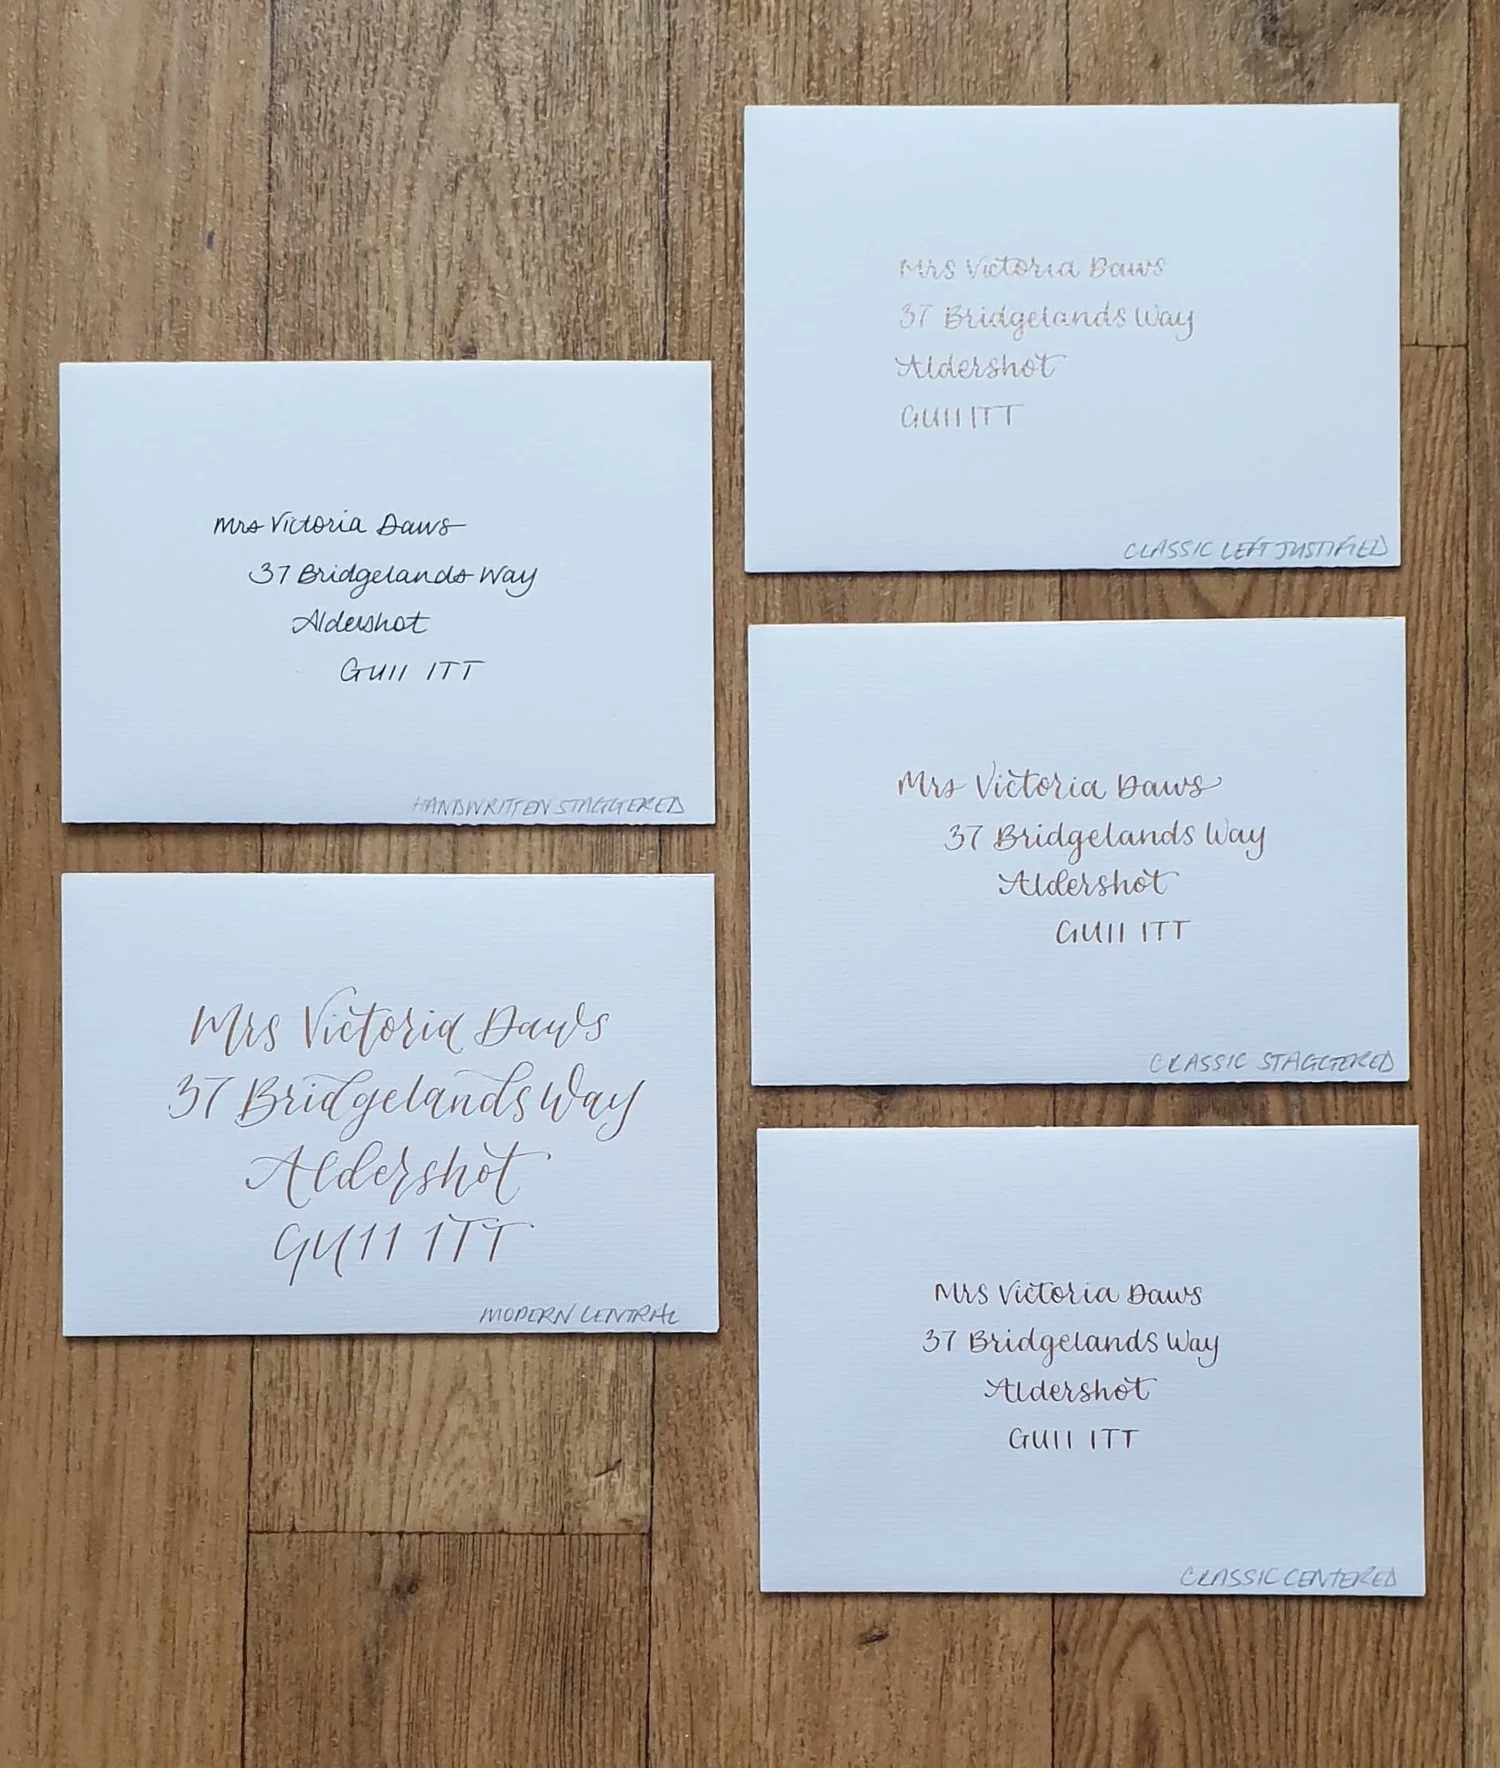 Mrs Victoria Daws
37 Bridgelands Way
Aldershot
GU11 1TT
HANDWRITTEN STAGGERED
Mrs Victoria Daws
37 Bridgelands Way
Aldershot
GU11 1TT
MODERN CENTRAL
Mrs Victoria Daws
37 Bridgelands Way
Aldershot
GU11 1TT
CLASSIC LEFT JUSTIFIED
Mrs Victoria Daws
37 Bridgelands Way
Aldershot
GU11 1TT
CLASSIC STAGGERED
Mrs Victoria Daws
37 Bridgelands Way
Aldershot
GU11 1TT
CLASSIC CENTERED